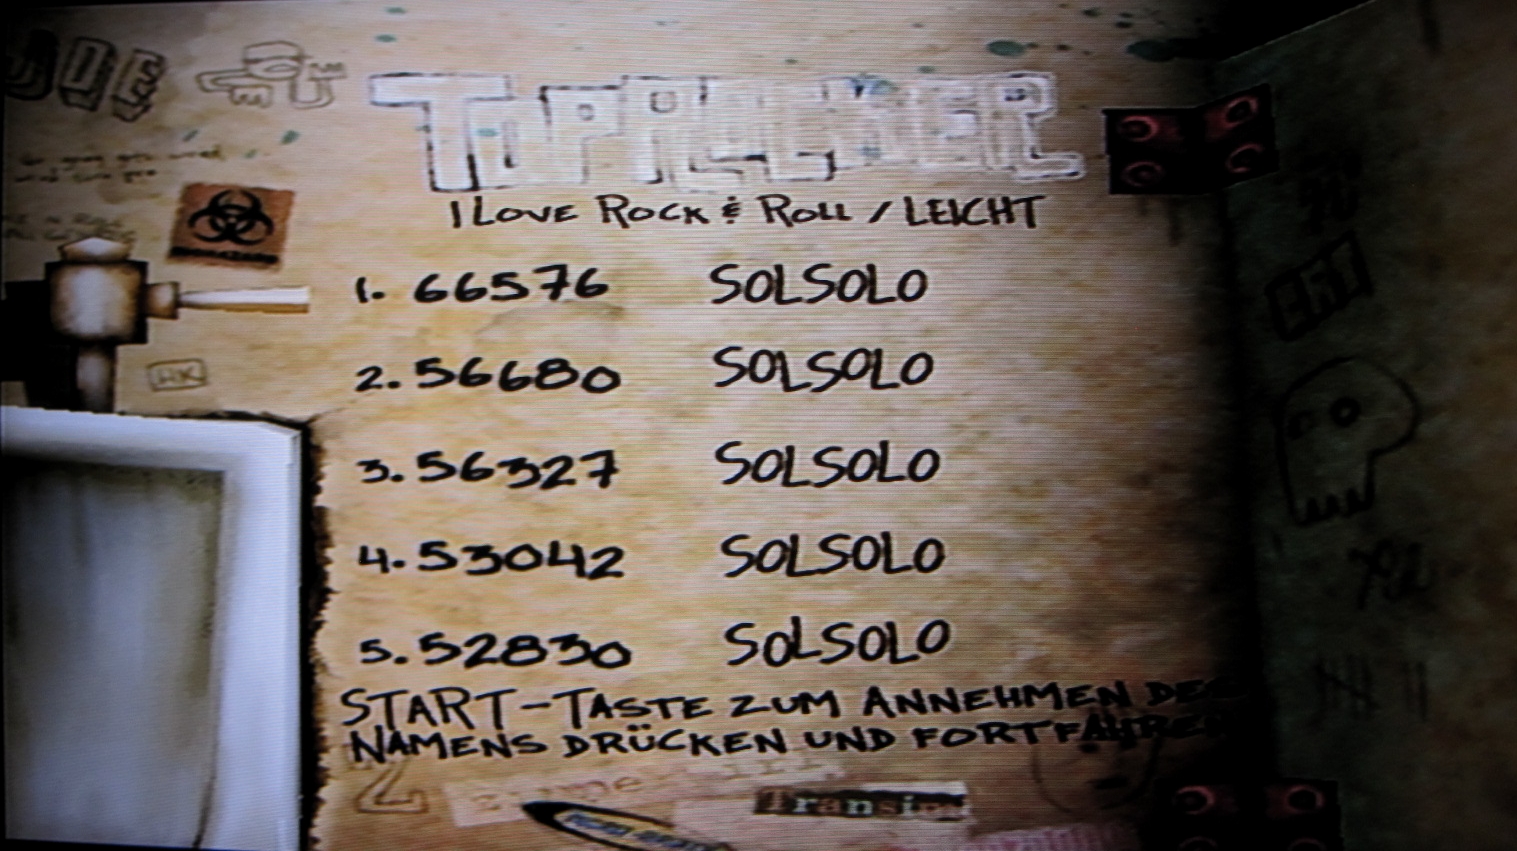 DIE
TOPROCKER
I LOVE ROCK & ROLL / LEICHT
1. 66576 SOLSOLO
2. 56680 SOLSOLO
HK
3. 56327 SOLSOLO
4. 53042 SOLSOLO
5. 52830 SOLSOLO
START-TASTE ZUM ANNEHMEN DES
NAMENS DRÜCKEN UND FORTFAHREN